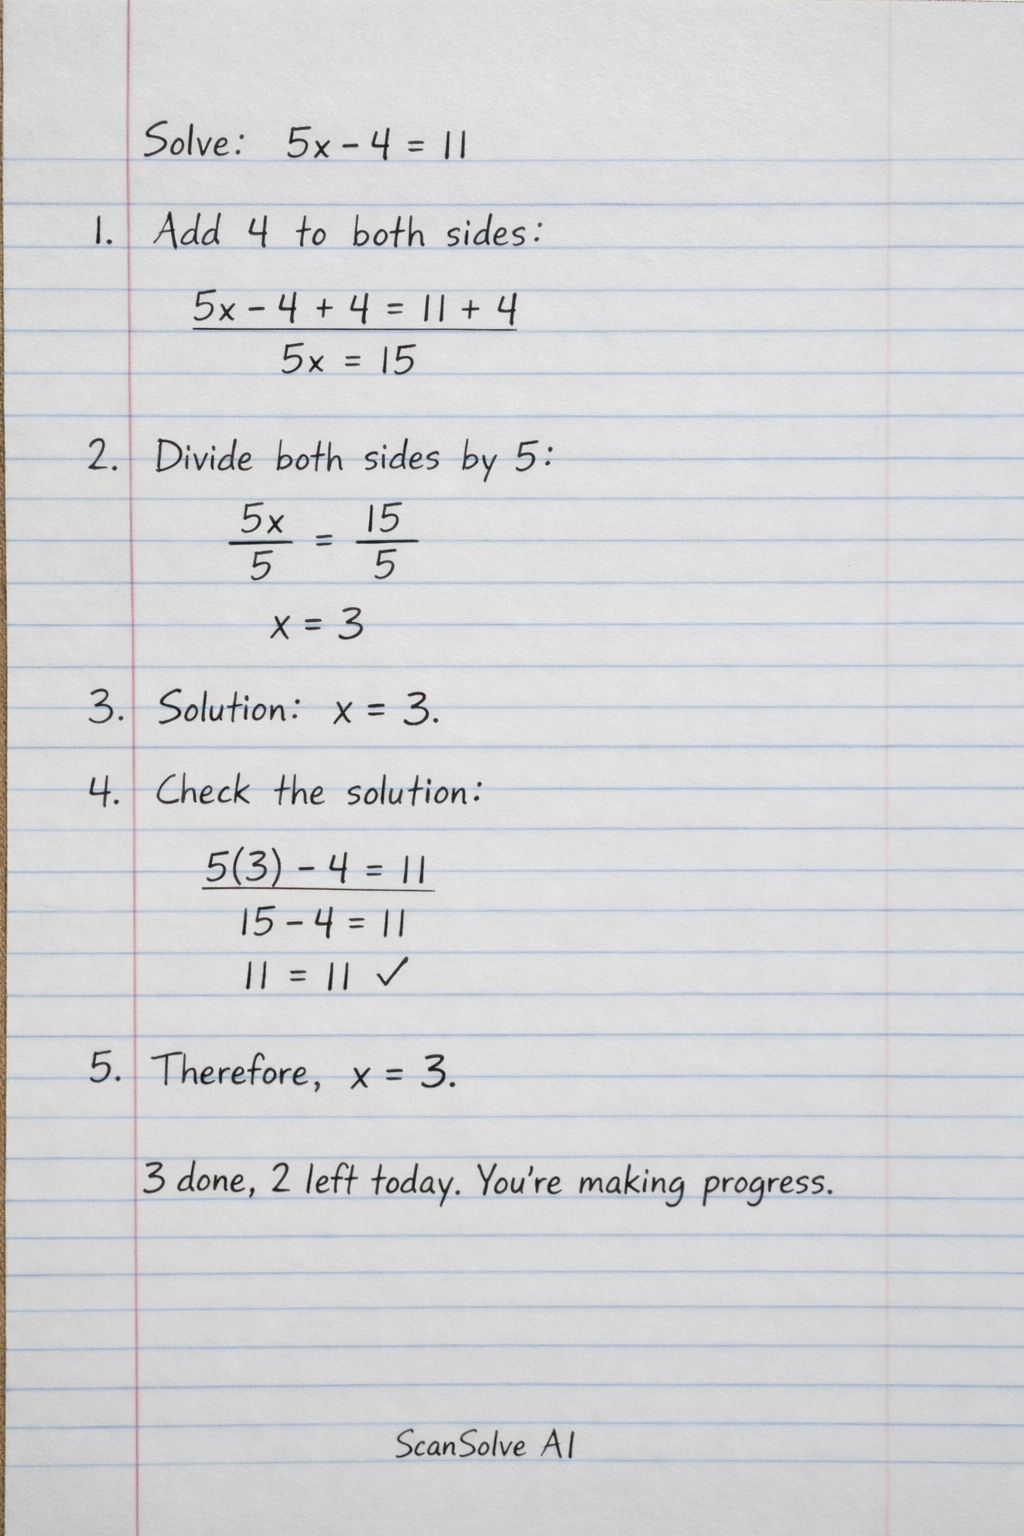 Solve: 5x - 4 = 11
1. Add 4 to both sides:
5x - 4 + 4 = 11 + 4
5x = 15
2. Divide both sides by 5:
5x/5 = 15/5
x = 3
3. Solution: x = 3.
4. Check the solution:
5(3) - 4 = 11
15 - 4 = 11
11 = 11 ✓
5. Therefore, x = 3.
3 done, 2 left today. You're making progress.
ScanSolve AI